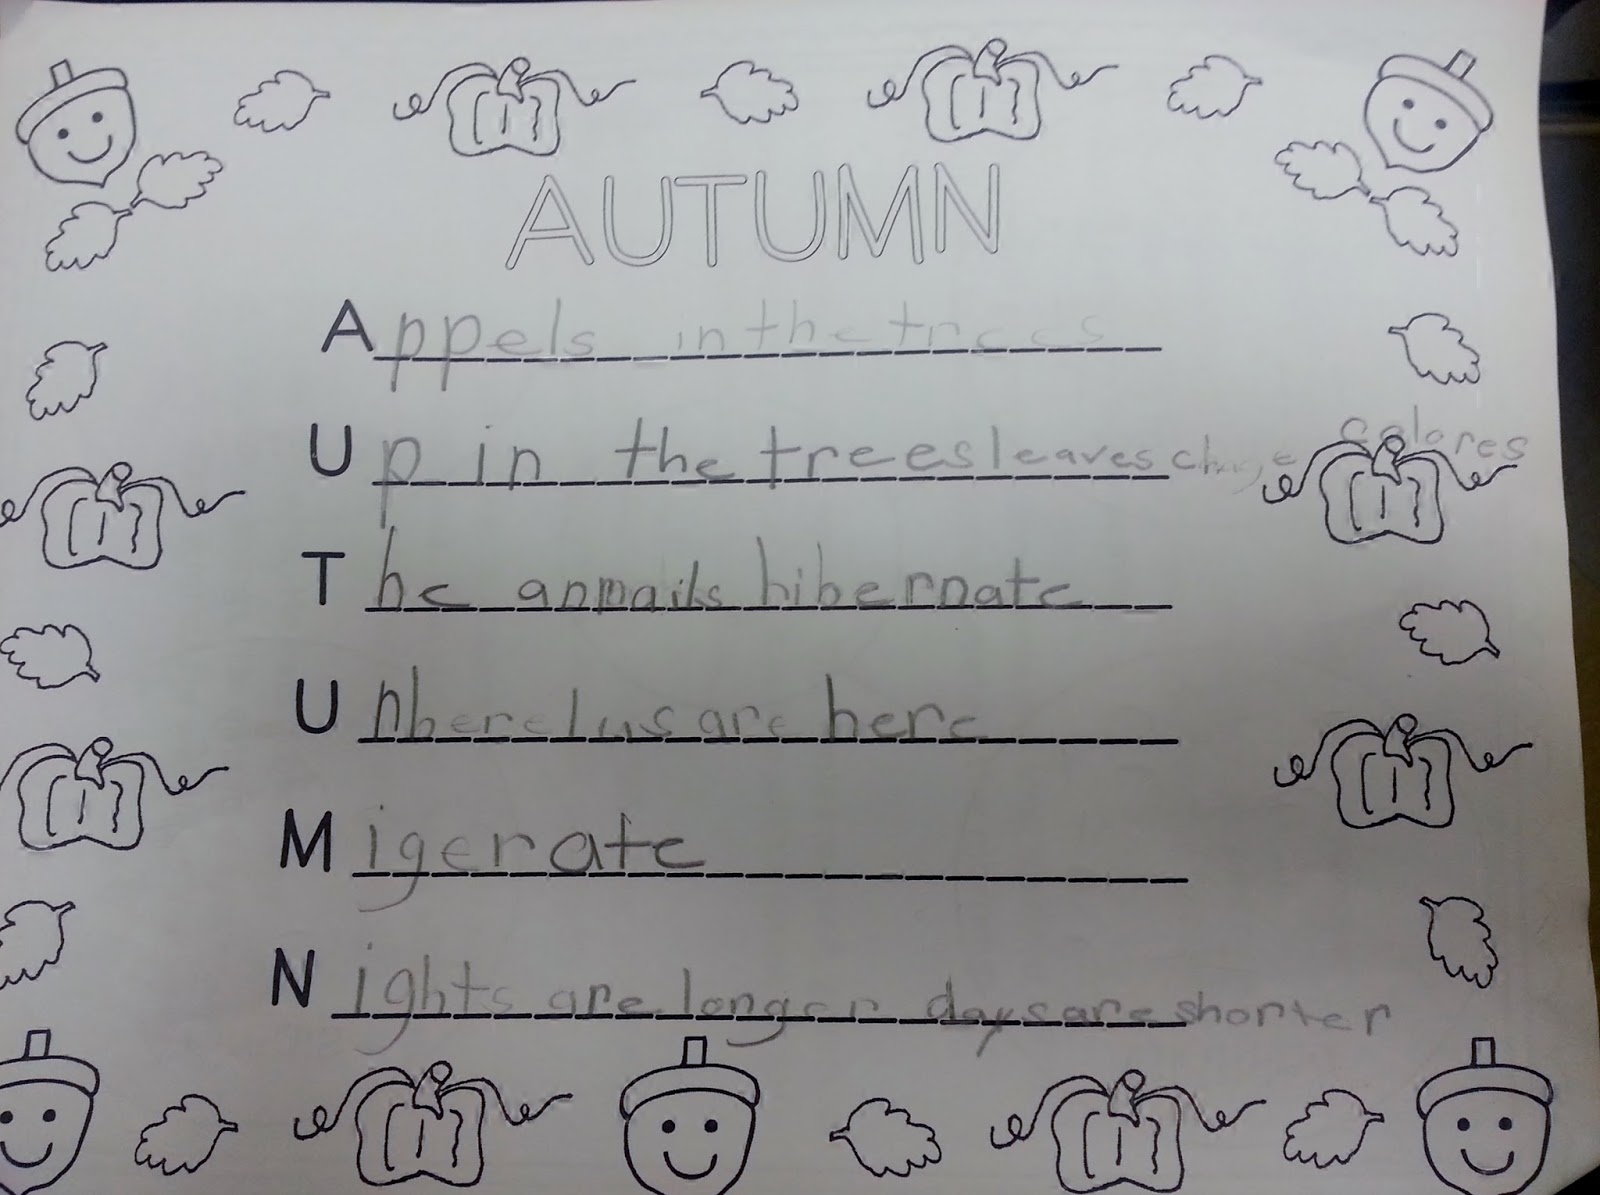 AUTUMN
Appels in the trees
Up in the trees leaves chage colores
The anmails hibernate
Unberelus are here
Migerate
Nights are longer days are shorter